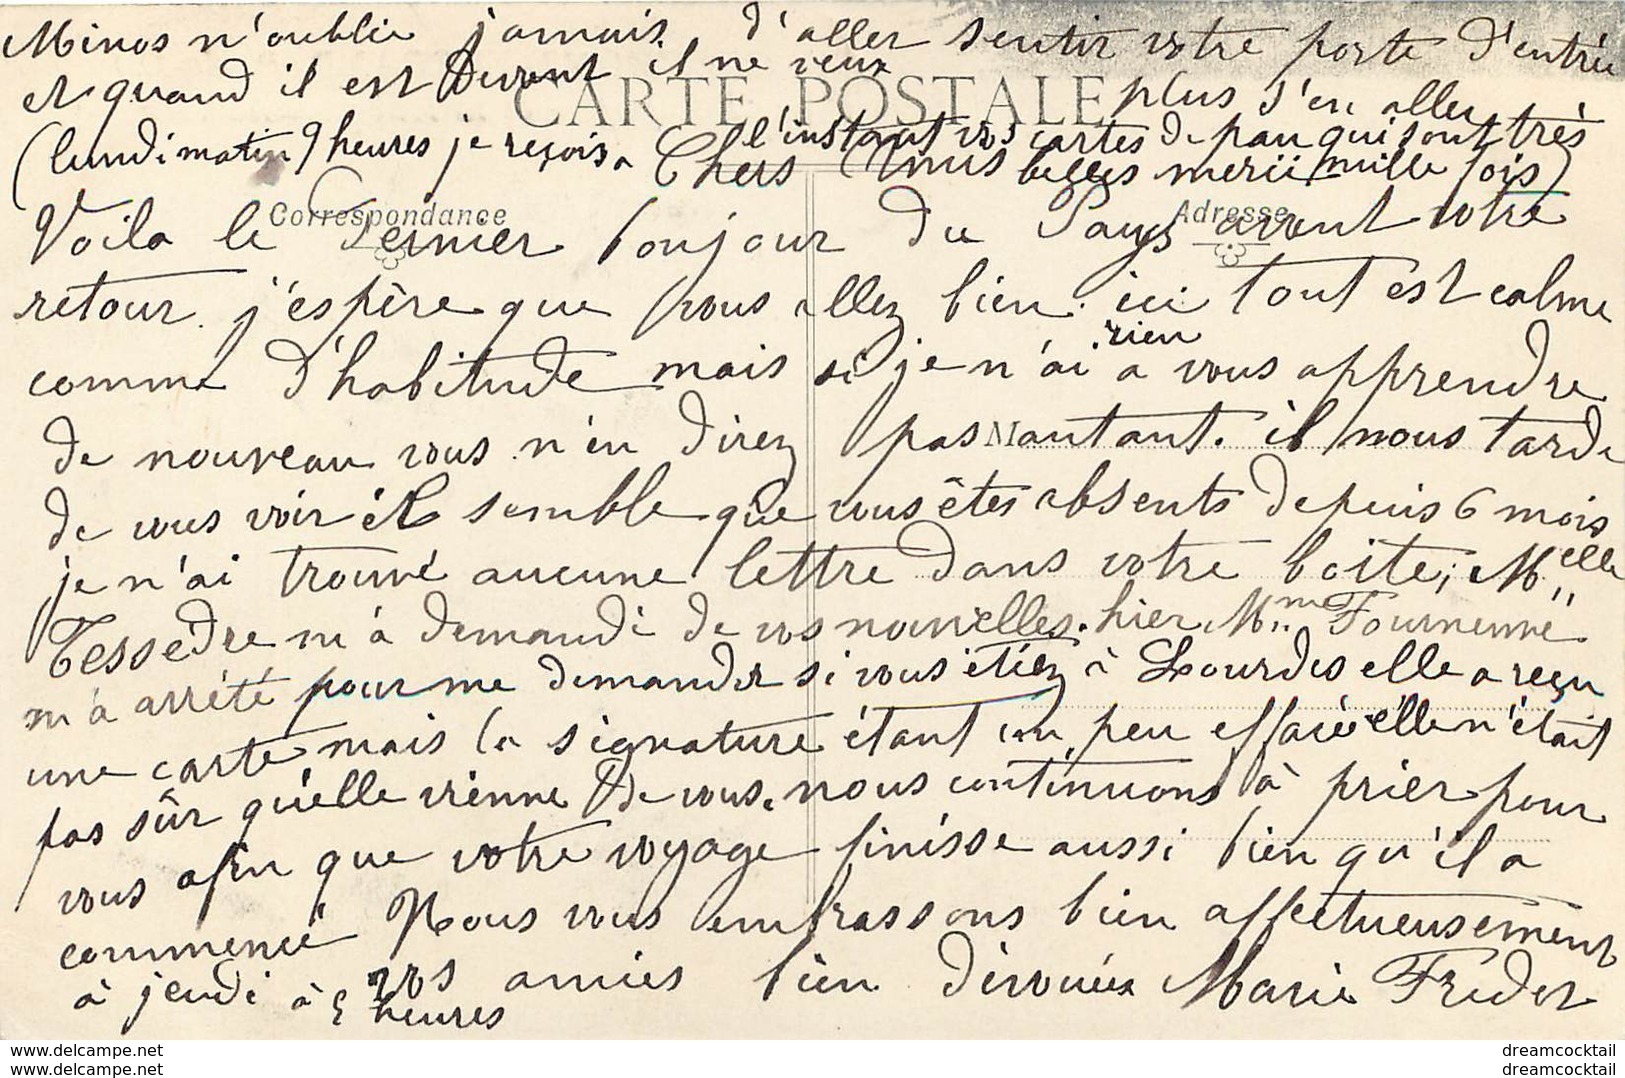 Minos n'oublie jamais d'aller sentir votre porte d'entrée
et quand il est devent il ne veux
plus s'en aller
CARTE POSTALE
(lundi matin 9 heures je reçois a l'instant vos cartes de pau qui sont très
Chers Amis belles merii mille fois)
Correspondance
Adresse
Voila le dernier bonjour du Pays avent votre
retour. j'espère que vous allez bien. ici tout est calme
comme d'habitude mais si je n'ai rien a vous apprendre
de nouveau vous n'en direz pas autant. il nous tarde
M
de vous voir il semble que vous êtes absents depuis 6 mois
je n'ai trouvé aucune lettre dans votre boite, Melle
Tessedre m'a demandé de vos nouvelles. hier Mme
m'a arrété pour me demander si vous étiez à Lourdes elle a reçu
une carte mais la signature étant un peu elle n'était
pas sûr qu'elle vienne de vous. nous continuons à prier pour
vous afin que votre voyage finisse aussi bien qu'il a
commencé Nous vous embrassons bien affectueusement
à jeudi à 5 heures vos amies bien dévouéex Marie Freder
www.delcampe.net
www.delcampe.net
dreamcocktail
dreamcocktail